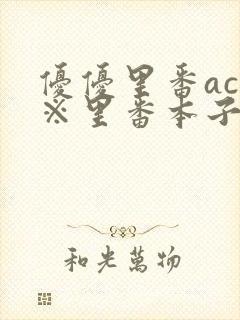 優優里番ac
※里番本子
和光萬物